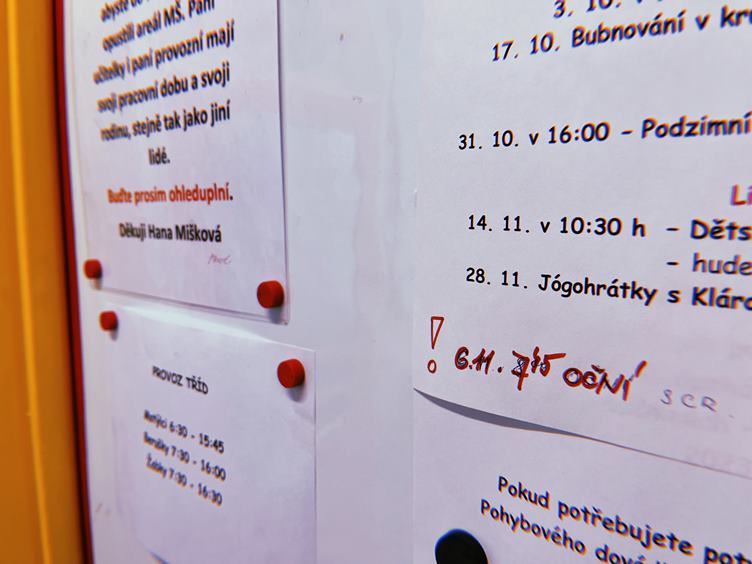 abyste do
opustili areál MŠ. Paní
učitelky i paní provozní mají
svoji pracovní dobu a svoji
rodinu, stejně tak jako jiní
lidé.
Buďte prosím ohleduplní.
Děkuji Hana Mišková
PROVOZ TŘÍD
Motýlci 6:30 - 15:45
Berušky 7:30 - 16:00
Žabky 7:30 - 16:30
3. 10.
17. 10. Bubnování v kru
31. 10. v 16:00 - Podzimní
Li
14. 11. v 10:30 h - Děts
- hude
28. 11. Jógohrátky s Kláro
! 6.11. 7:45 OČNÍ SCR.
Pokud potřebujete pot
Pohybového dove